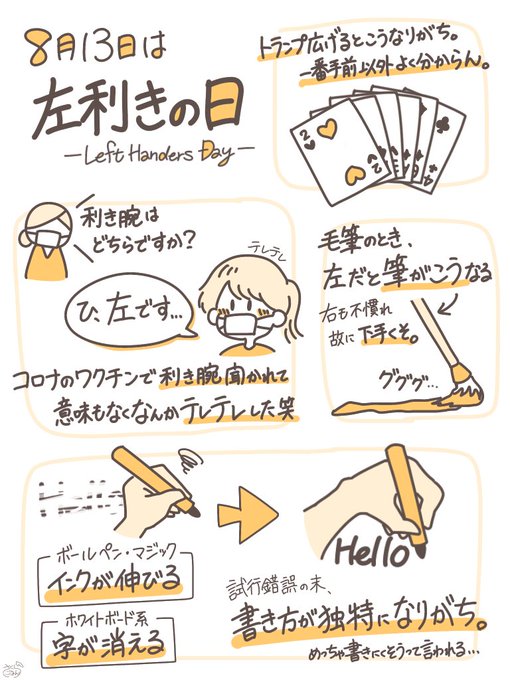 8月13日は
左利きの日
-Left Handers Day-
トランプ広げるとこうなりがち。
一番手前以外よく分からん。
2
2
利き腕は
どちらですか?
テレテレ
ひ、左です…
コロナのワクチンで利き腕聞かれて
意味もなくなんかテレテレした笑
毛筆のとき、
左だと筆がこうなる
右も不慣れ
故に下手くそ。
グググ…
Hello
ボールペン・マジック
インクが伸びる
ホワイトボード系
字が消える
Hello
試行錯誤の末、
書き方が独特になりがち。
めっちゃ書きにくそうって言われる…